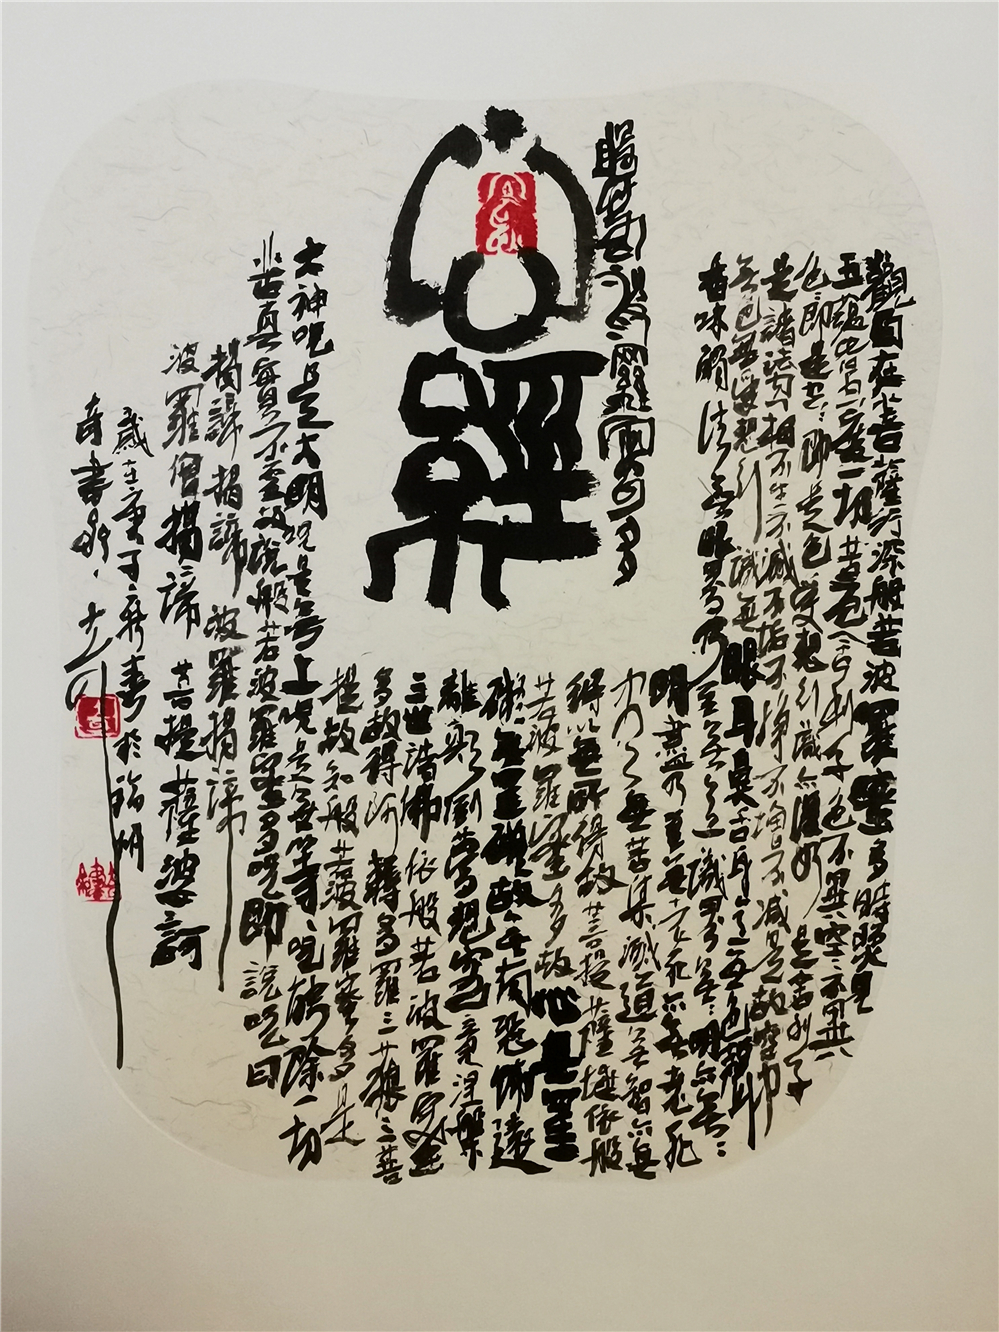 般若波羅蜜多
心經
觀自在菩薩行深般若波羅蜜多時照見
五蘊皆空度一切苦厄舍利子色不異空空不異
色色即是空空即是色受想行識亦復如是舍利子
是諸法空相不生不滅不垢不淨不增不減是故空中
無色無受想行識無眼耳鼻舌身意無色聲
香味觸法無眼界乃至無意識界無無明亦無無
明盡乃至無老死亦無老死
盡無苦集滅道無智亦無
得以無所得故菩提薩埵依般
若波羅蜜多故心無罣
礙無罣礙故無有恐怖遠
離顛倒夢想究竟涅槃
三世諸佛依般若波羅蜜
多故得阿耨多羅三藐三菩
提故知般若波羅蜜多是
大神咒是大明咒是無上咒是無等等咒能除一切
苦真實不虛故說般若波羅蜜多咒即說咒曰
揭諦揭諦波羅揭諦
波羅僧揭諦菩提薩婆訶
歲在丁新春於